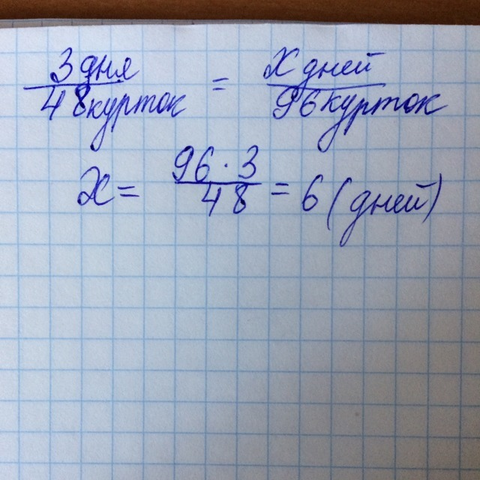 3 дня / 48 курток = x дней / 96 курток
x = 96 · 3 / 48 = 6 (дней)